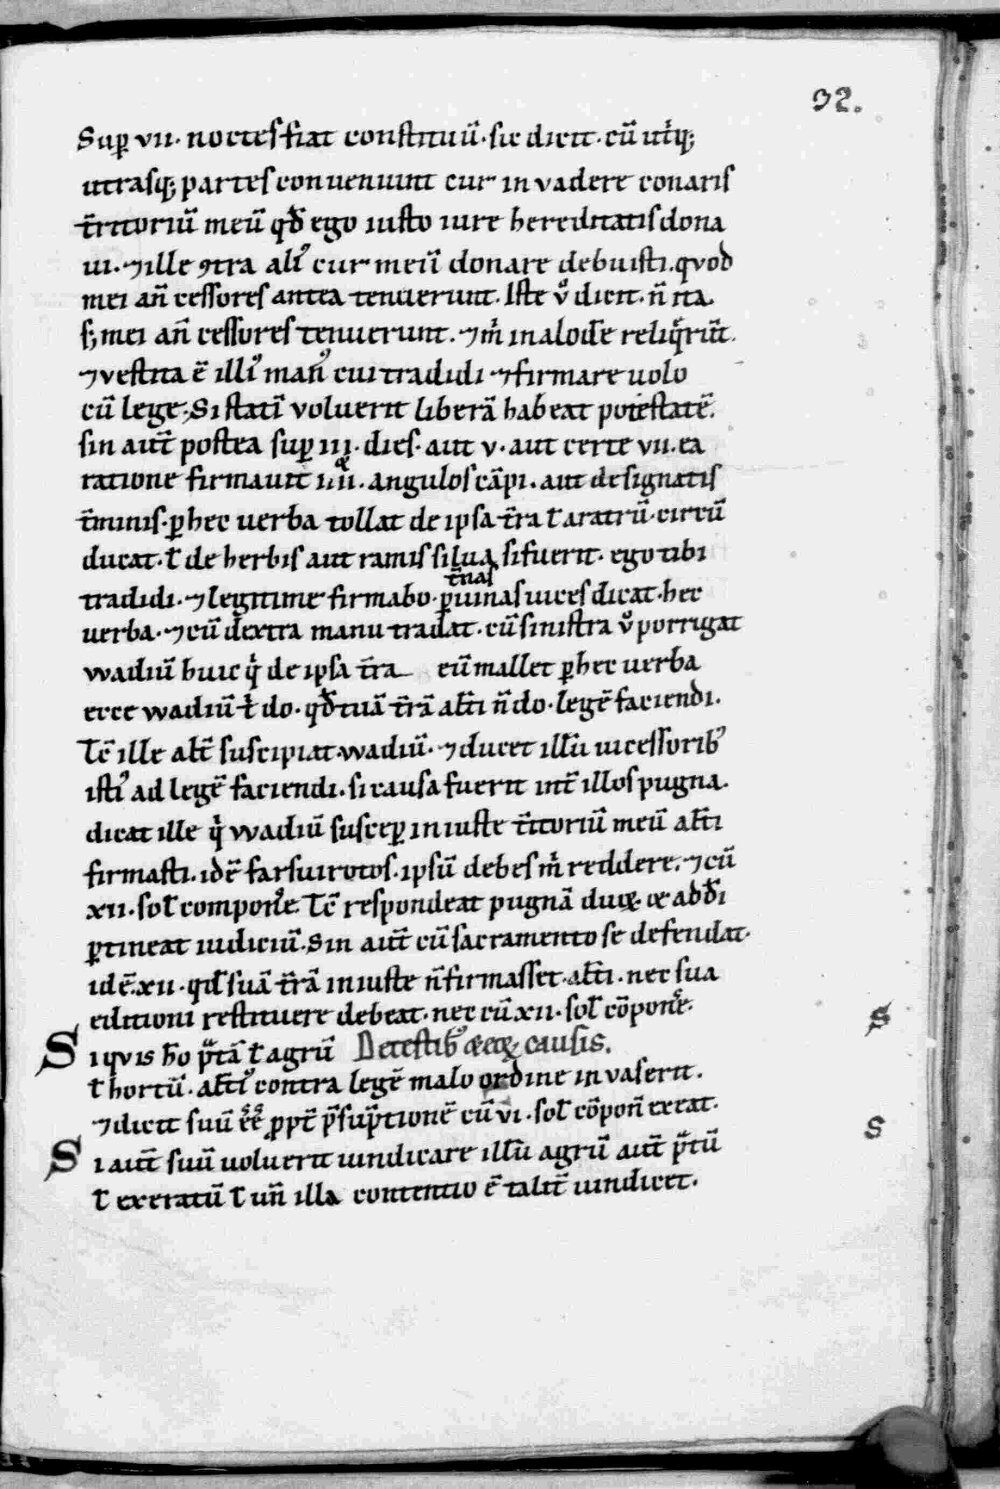 32.
Suꝑ vii· noctes fiat constitutū· sic dicit· cū utͥq;
utrasq; partes conueniunt cur invadere conaris
t̄ritoriū meū qd̄ ego iusto iure hereditatis dona
ui· ⁊ ille ꝯtra aliꝰ cur meū donare debuisti· quod
mei an̄ cessores antea tenuerunt· Iste v̊ dicit· n̄ ita·
s; mei an̄ cessores tenuerunt· ⁊ mͥ in alode reliq̊rūt·
⁊ vestita ē illiꝰ manꝰ cui tradidi ⁊ firmare uolo
cū lege· Si statī voluerit liberā habeat potestatē·
sin aut̄ postea suꝑ iii· dies· aut v· aut certe vii· ea
ratione firmauit iiii· angulos cāpi· aut designatis
t̄minis· ꝑ hec uerba tollat de ipsa t̄ra ł aratrū· circū
ducat· ł de herbis aut ramis silua si fuerit· ego tibi
t̄nas
tradidi· ⁊ legitime firmabo· ꝑ uinas uices dicat· hec
uerba· ⁊ cū dextra manu tradat· cū sinistra v̊ porrigat
wadiū huic qͥ de ipsa t̄ra eū mallet ꝑ hec uerba
ecce wadiū tͥ do· qd̄ tuā t̄rā alt̄i n̄ do· legē faciendi·
Tc̄ ille alt̄ suscipiat wadiū· ⁊ ducet illū uicessoribꝰ
istiꝰ ad legē faciendi· si causa fuerit int̄ illos pugna·
dicat ille qͥ wadiū suscep̄ iniuste t̄ritoriū meū alt̄i
firmasti· idē farsuirotos· ipsū debes mͥ reddere· ⁊ cū
xii· sol̄ componͤe· Tc̄ respondeat pugnā duoꝝ· ⁊ ad dī
ꝑtineat iudiciū· Sin aut̄ cū sacramento se defendat·
idē· xii· qd̄ suā t̄rā iniuste n̄ firmasset· alt̄i· nec sua
editioni restituere debeat· nec cū xii· sol̄ cōponͤe·
Si qvis hō p̄tā ł agrū De testibꝰ & eoꝝ causis.
ł hortū· alt̄iꝰ contra legē malo ordine invaserit·
⁊ dicit suū ēē ꝓpt̄ p̄sūptionē cū vi· sol̄ cōpon̄ exeat·
Si aut̄ suū uoluerit uindicare illū agrū aut p̄tū
ł exeratū ł un̄ illa contentio ē talit̄ uindicet·
S
S